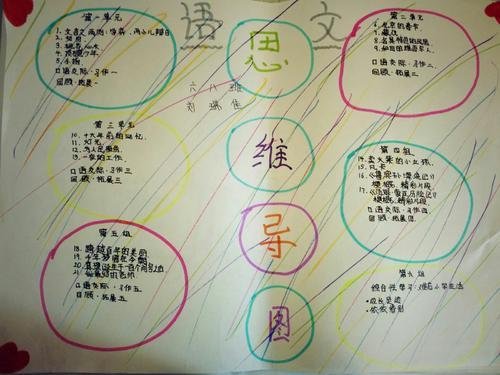 语文
思维导图
六八班
第一单元
1. 文言文两则:学弈、两小儿辩日
2. 匆匆
3. 桃花心木
4. 顶碗少年
5. 手指
口语交际·习作一
回顾·拓展一
第二单元
6. 北京的春节
7. 藏戏
8. 各具特色的民居
9. 和田的维吾尔人
口语交际·习作二
回顾·拓展二
第三单元
10. 十六年前的回忆
11. 灯光
12. 为人民服务
13. 一夜的工作
口语交际·习作三
回顾·拓展三
第四组
14. 卖火柴的小女孩
15. 凡卡
16. 《鲁滨孙漂流记》
梗概 精彩片段
17. 《汤姆·索亚历险记》
梗概 精彩片段
口语交际·习作四
回顾·拓展四
第五组
18. 跨越百年的美丽
19. 千年梦圆在今朝
20. 真理诞生于一百个问号之后
21.
口语交际·习作五
回顾·拓展五
第六组
综合性学习:难忘小学生活
·成长足迹
·依依惜别